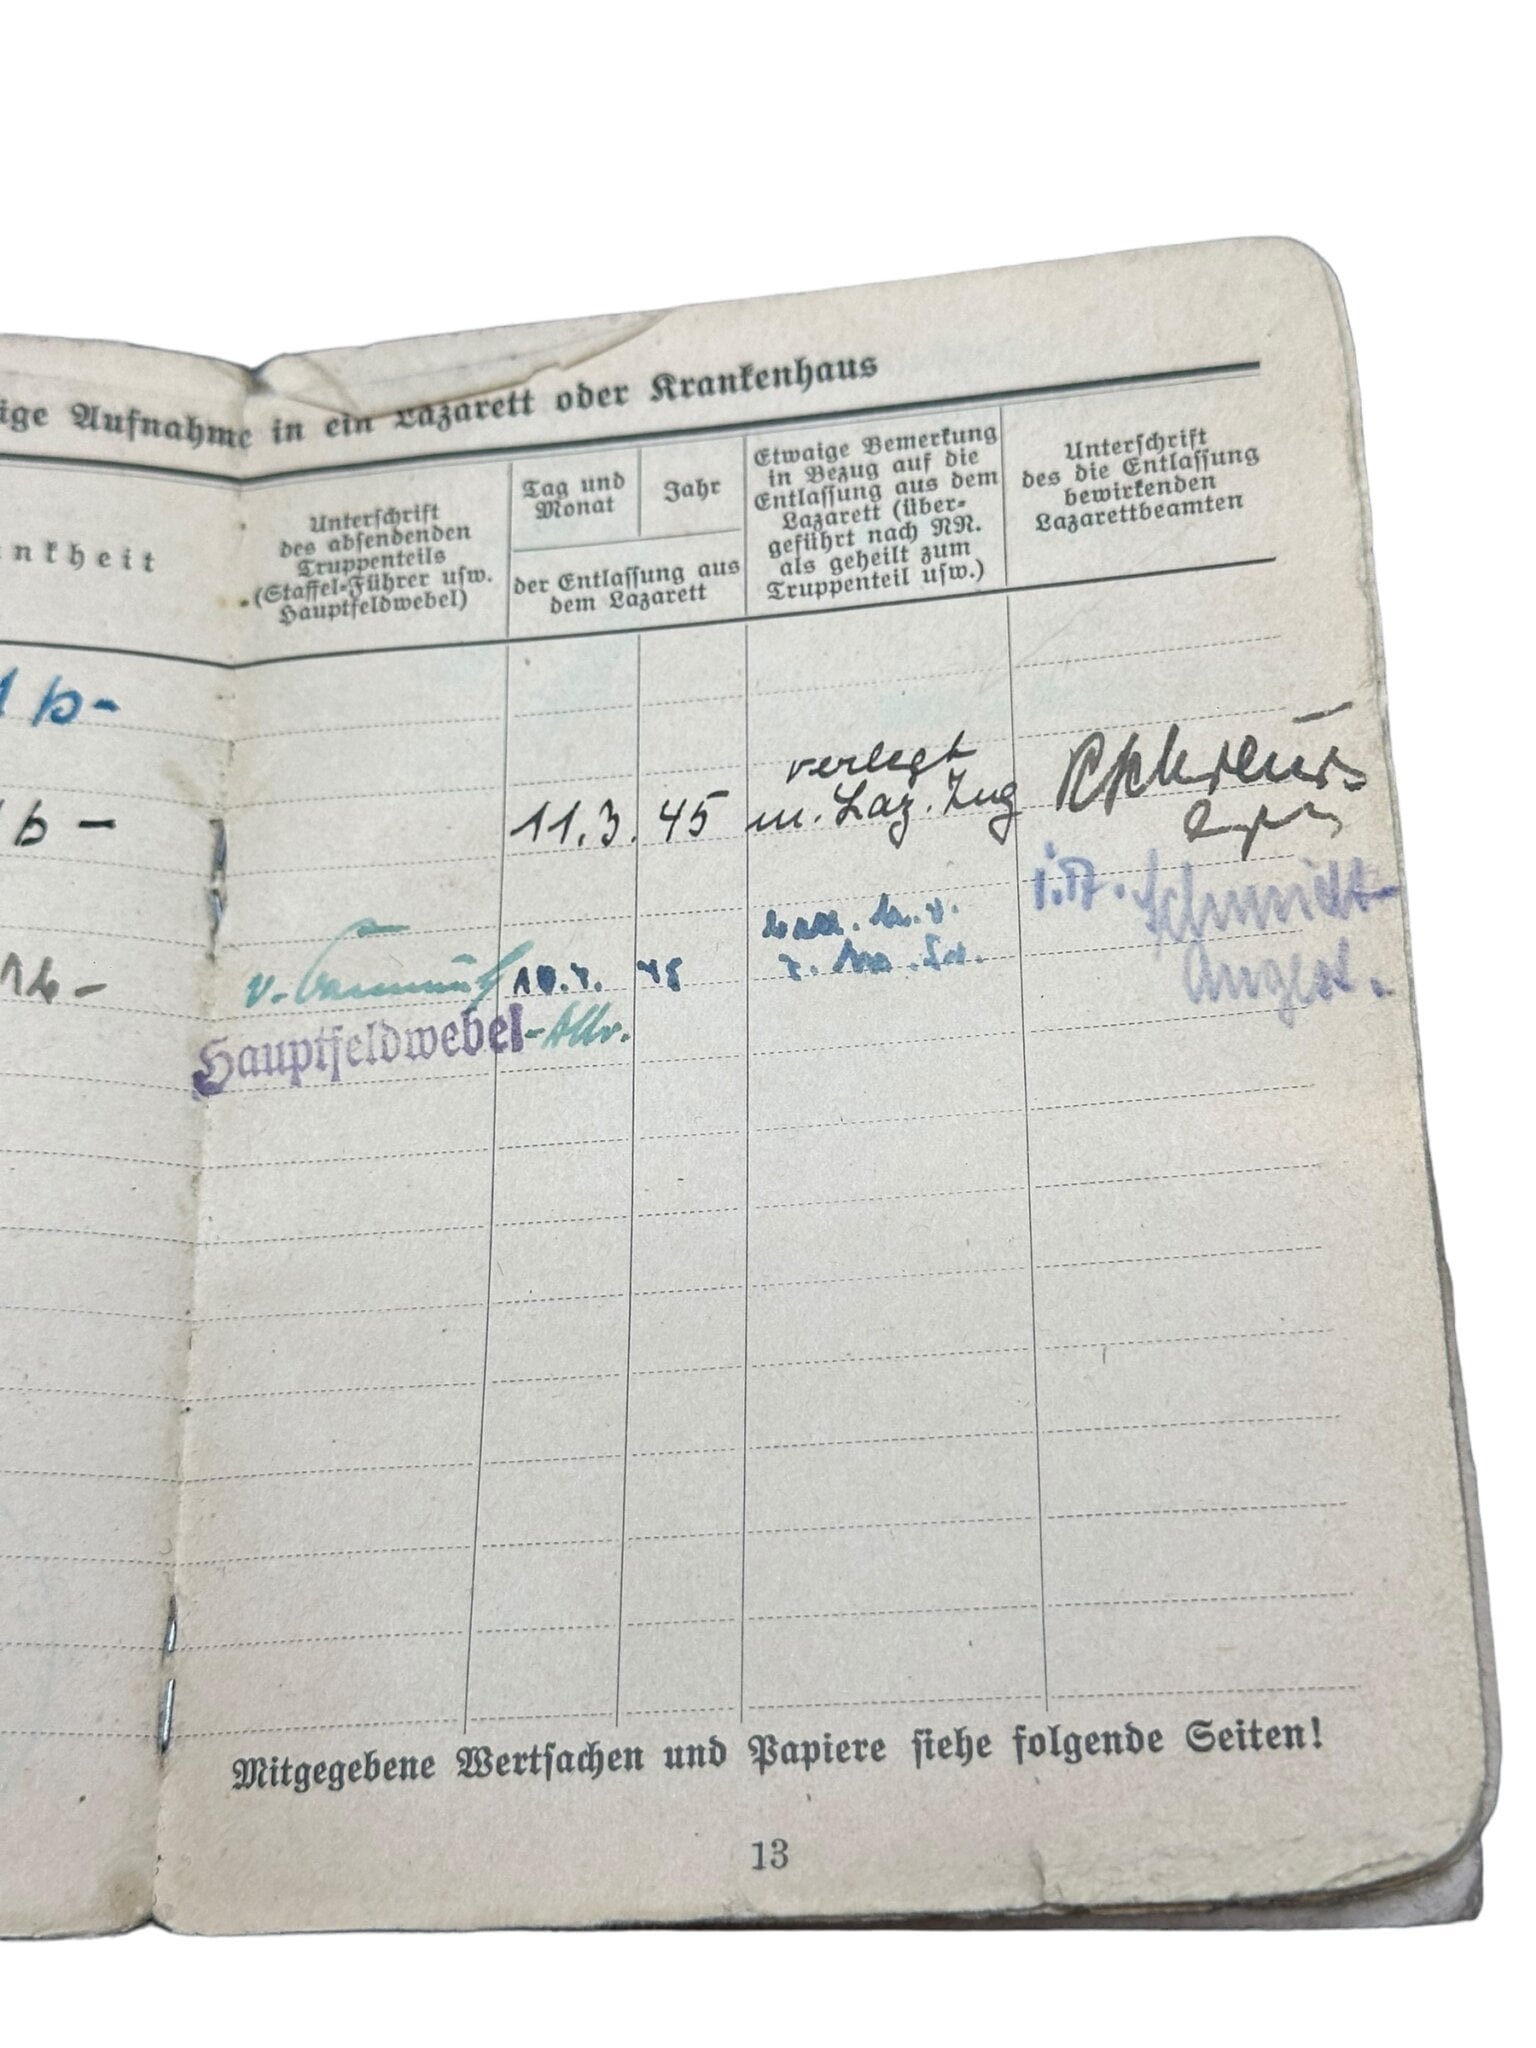 ige Aufnahme in ein Lazarett oder Krankenhaus
nkheit
Unterschrift
des absendenden
Truppenteils
(Staffel-Führer usw.
Hauptfeldwebel)
Tag und
Monat
Jahr
der Entlassung aus
dem Lazarett
Etwaige Bemerkung
in Bezug auf die
Entlassung aus dem
Lazarett (über-
geführt nach NN.
als geheilt zum
Truppenteil usw.)
Unterschrift
des die Entlassung
bewirkenden
Lazarettbeamten
1 b-
verlegt
b - 11.3. 45 m. Laz. Zug
i.A. Schmidt
Angest.
v.
Hauptfeldwebel
Mitgegebene Wertsachen und Papiere siehe folgende Seiten!
13